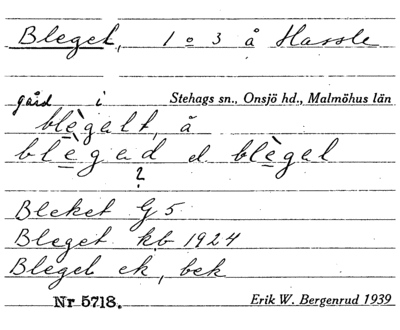 Bleget, 1 o 3 å Hassle
gård i Stehags sn., Onsjö hd., Malmöhus län
blègalt, å
blègad el. blègel
?
Bleket G 5
Bleget kb 1924
Blegeb ek, bek
Nr 5718. Erik W. Bergenrud 1939